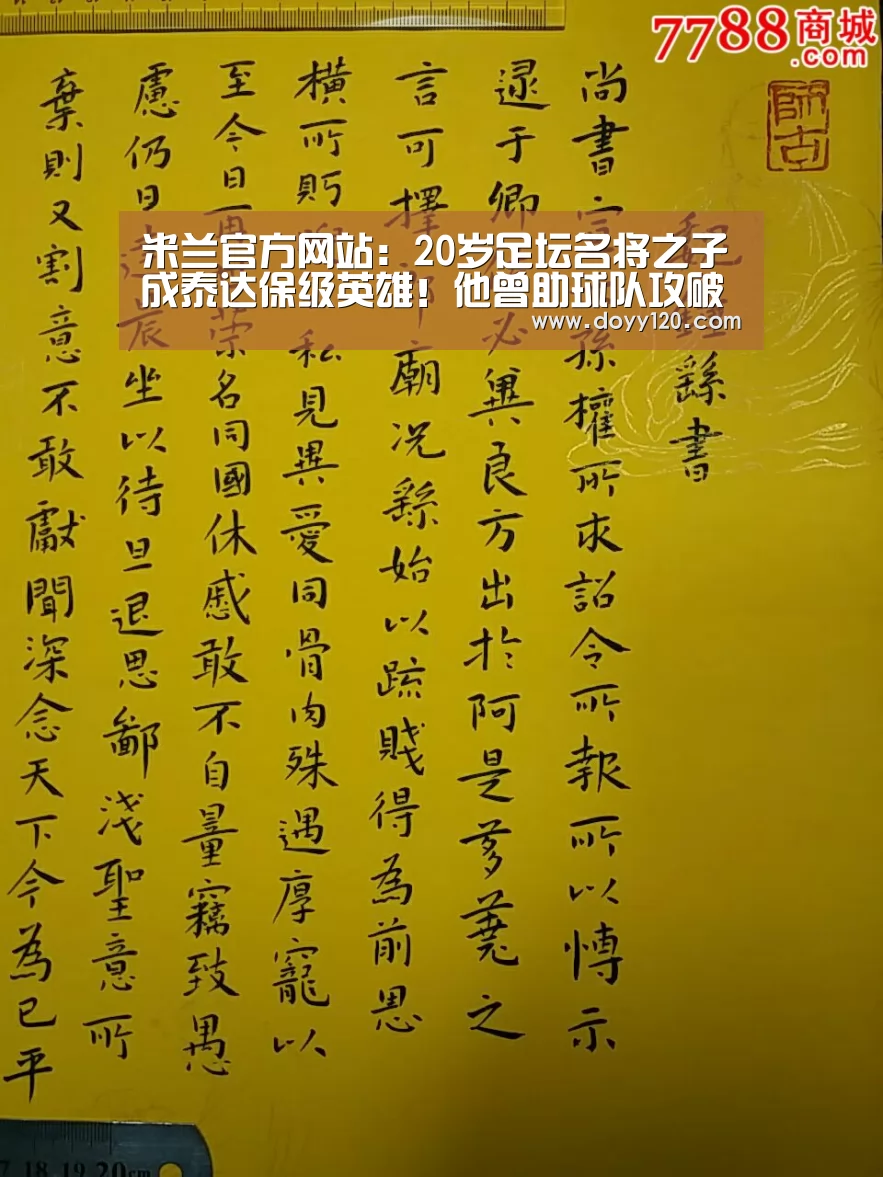 7788商城
.com
师古
魏 繇書
尚書宣 孫權所求詔令所報所以博示
逯于卿 必冀良方出於阿是芻蕘之
言可擇 廟況繇始以疏賤得為前恩
橫所 私見異愛同骨肉殊遇厚寵以
至今日再 榮名同國休慼敢不自量竊致愚
慮仍日達晨坐以待旦退思鄙淺聖意所
棄則又割意不敢獻聞深念天下今為已平
米兰官方网站：20岁足坛名将之子
成泰达保级英雄！他曾助球队攻破
www.doyy120.com
17 18 19 20cm